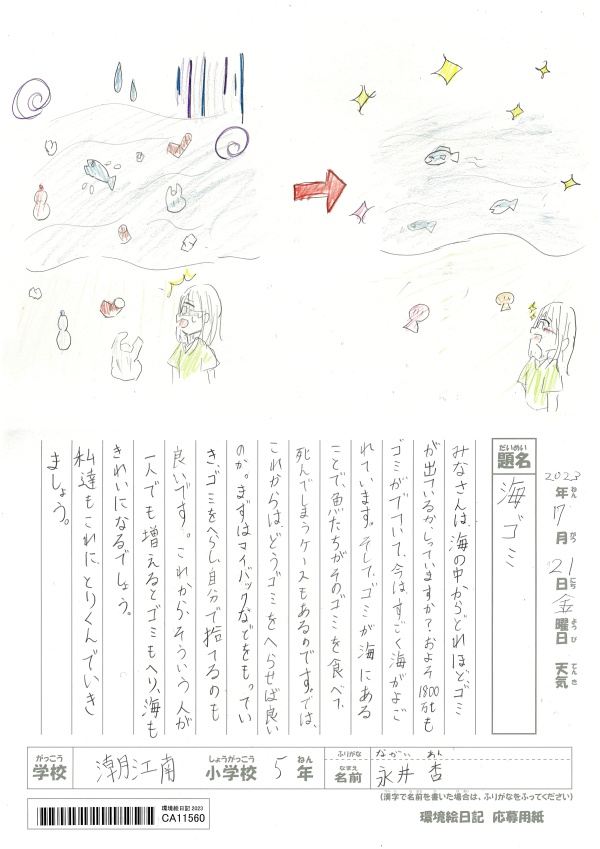 2023年7月21日金曜日 天気
ねん がつ にち ようび てんき
だいめい
題名
海ゴミ
みなさんは、海の中からどれほど、ゴミ
が出ているか、しっていますか?およそ1800万tも
ゴミがでていて、今は、すごく海がよご
れています。そして、ゴミが海にある
ことで、魚たちがそのゴミを食べて、
死んでしまうケースもあるのです。では、
これからは、どうゴミをへらせば良い
のか。まずはマイバックなどをもってい
き、ゴミをへらし、自分で捨てるのも
良いです。これから、そういう人が
一人でも増えるとゴミもへり、海も
きれいになるでしょう。
私達もこれに、とりくんでいき
ましょう。
がっこう しょうがっこう ねん ふりがな ながい あん
学校 潮江南 小学校 5年 なまえ 名前 永井 杏
(漢字で名前を書いた場合は、ふりがなをふってください)
環境絵日記 2023
CA11560
環境絵日記 応募用紙